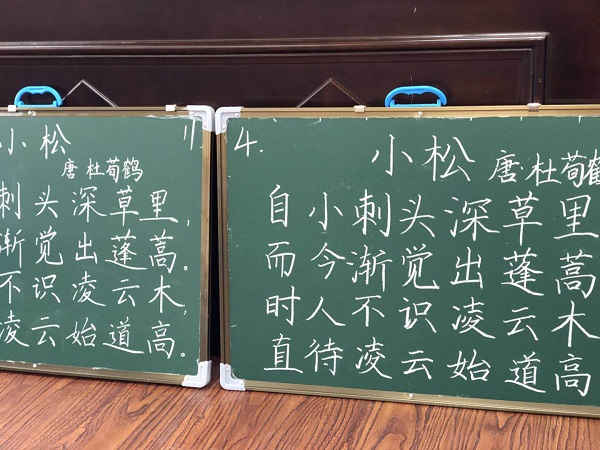 小松 11
唐 杜荀鹤
刺头深草里，
渐觉出蓬蒿。
不识凌云木，
凌云始道高。
4. 小松
唐·杜荀鹤
自小刺头深草里
而今渐觉出蓬蒿
时人不识凌云木
直待凌云始道高